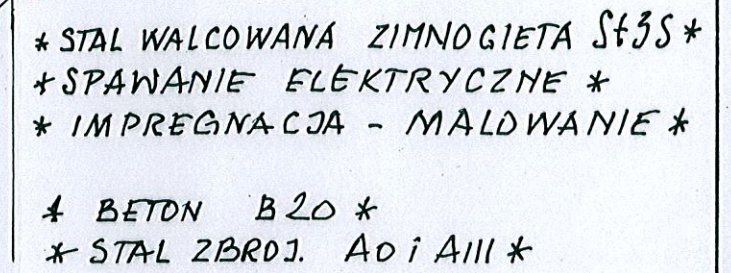 * STAL WALCOWANA ZIMNOGIETA St3S *
* SPAWANIE ELEKTRYCZNE *
* IMPREGNACJA - MALOWANIE *
* BETON B20 *
* STAL ZBROJ. A0 i AIII *